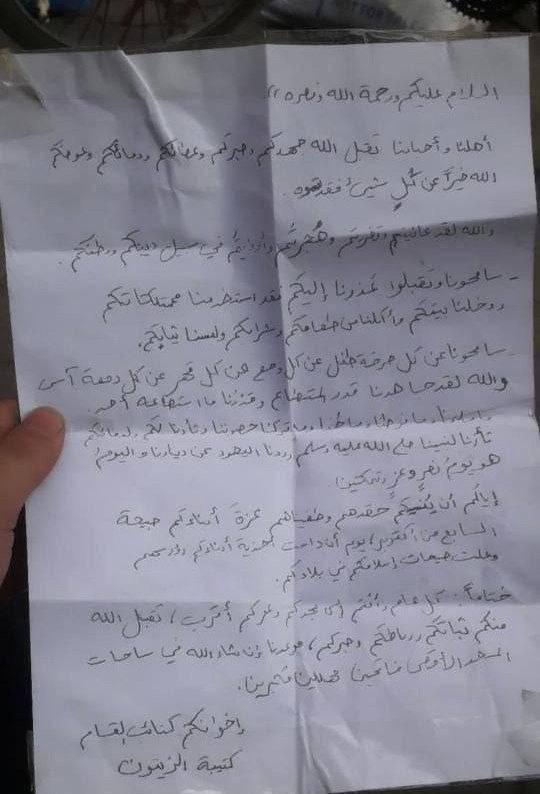 السلام عليكم ورحمة الله ونصره،،
أهلنا وأحبابنا تقبل الله جهدكم وصبركم وعطائكم ودمائكم وعوضكم
الله خيراً عن كل شيئ فقدتموه.
والله لقد عانيتم وهُجرتم وأوذيتم في سبيل دينكم ووطنكم.
- سامحونا وتقبلوا عُذرنا إليكم فقد استخدمنا ممتلكاتكم
ودخلنا بيتكم وأكلنا من طعامكم وشرابكم ولبسنا ثيابكم.
- سامحونا عن كل صرخة طفل عن كل وجع عن كل قهر عن كل دمعة آسى
والله لقد جاهدنا قدر المستطاع وقدمنا ما استطاعه أحد.
ثأرنا لنبينا صلى الله عليه وسلم رددنا اليهود عن ديارنا واليوم
هو يوم نصرٍ وعزٍ وتمكين
إياكم أن يُنسيكم حقدهم وطغيانهم عزة أبنائكم صبيحة
السابع من أكتوبر، يوم أن داست أحذية أبنائكم رؤوسهم
وعلت صيحات إسلامكم في بلادكم.
ختاماً: كل عام وأنتم إلى مجدكم وعزكم أقرب، تقبل الله
منكم ثباتكم ورباطكم وصبركم، موعدنا إن شاء الله في ساحات
المسجد الأقصى فاتحين مهللين مكبرين.
إخوانكم كتائب القسام
كتيبة الزيتون